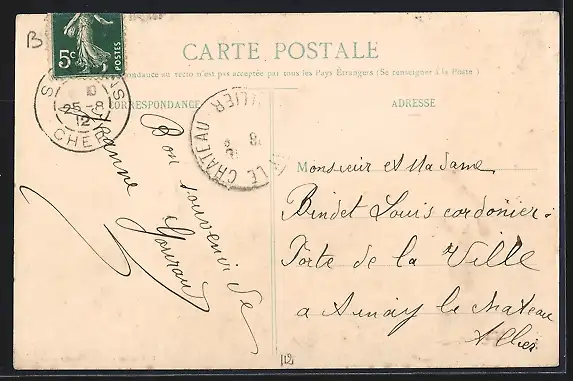 B
5c
POSTES
CARTE POSTALE
correspondance au recto n'est pas acceptée par tous les Pays Étrangers (Se renseigner à la Poste)
CORRESPONDANCE
ADRESSE
25-8
12
CHER
LE CHATEAU
Bon souvenir de
Jeanne Gouraud
Monsieur et Madame
Bindet Louis cordonier
Porte de la Ville
a Ainay le chateau
Allier
112